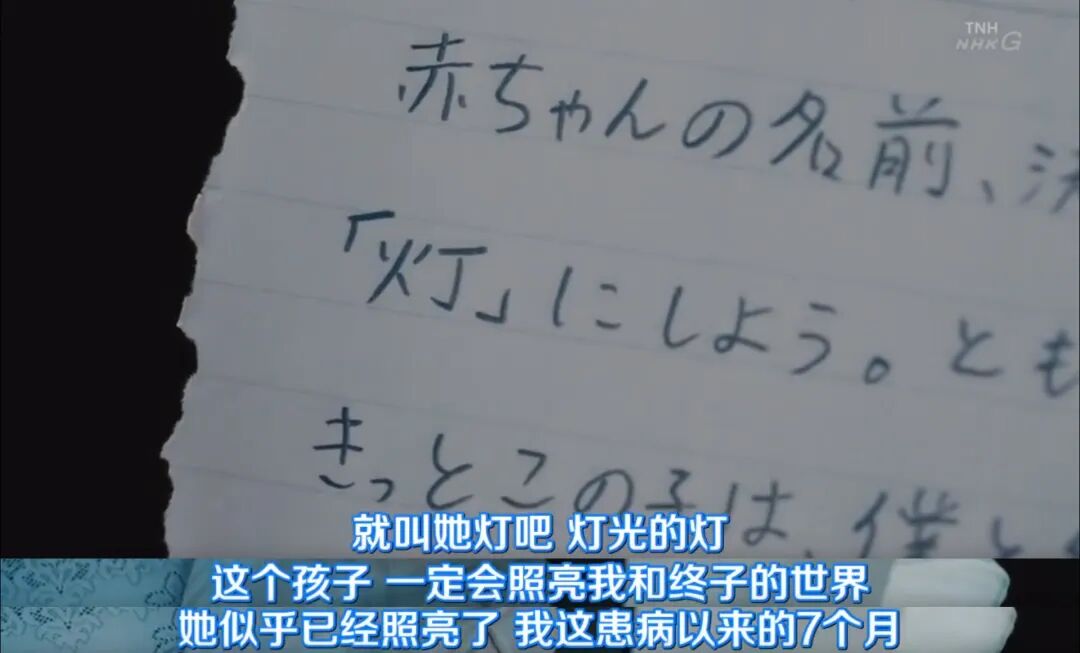 TNH
NHK G
赤ちゃんの名前、決
「灯」にしよう。とも
きっとこの子は、僕と
就叫她灯吧 灯光的灯
这个孩子 一定会照亮我和终子的世界
她似乎已经照亮了 我这患病以来的7个月